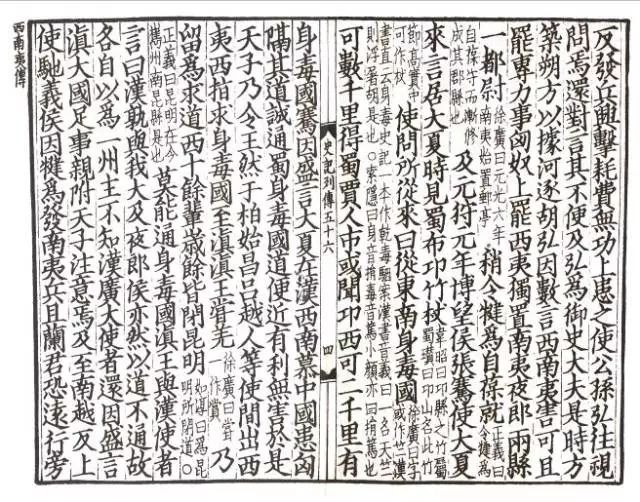 反發兵興擊耗費無功上患之使公孫弘往視
問焉還對言其不便及弘為御史大夫是時方
築朔方以據河逐胡弘因數言西南夷害可且
罷專力事匈奴上罷西夷獨置南夷夜郎兩縣
一都尉徐廣曰元光六年南夷始置郵亭稍令犍為自葆就正義曰令犍為
自葆守而漸修成其郡縣也及元狩元年博望侯張騫使大夏
來言居大夏時見蜀布卭竹杖韋昭曰卭縣之竹蜀瓚曰卭山名此竹
節高實中可作杖使問所從來曰從東南身毒國徐廣曰字或作竺漢
書直云身毒史記一本作乾毒駰案漢書音義曰一名天竺則浮屠胡是也○索隱曰身音捐毒音篤小顔亦曰捐篤也
可數千里得蜀賈人市或聞卭西可二千里有
史記列傳五十六
四
身毒國騫因盛言大夏在漢西南慕中國患匈
隔其道誠通蜀身毒國道便近有利無害於是
天子乃令王然于柏始昌吕越人等使間出西
夷西指求身毒國至滇滇王甞羌徐廣曰甞一作賞乃
留為求道西十餘輩歳餘皆閉昆明如淳曰為昆明所閉道○
正義曰昆明在今嶲州南昆縣是也莫能通身毒國滇王與漢使者
言曰漢孰與我大及夜郎侯亦然以道不通故
各自以為一州主不知漢廣大使者還因盛言
滇大國足事親附天子注意焉及至南越反上
使馳義侯因犍為發南夷兵且蘭君恐遠行旁
西南夷傳